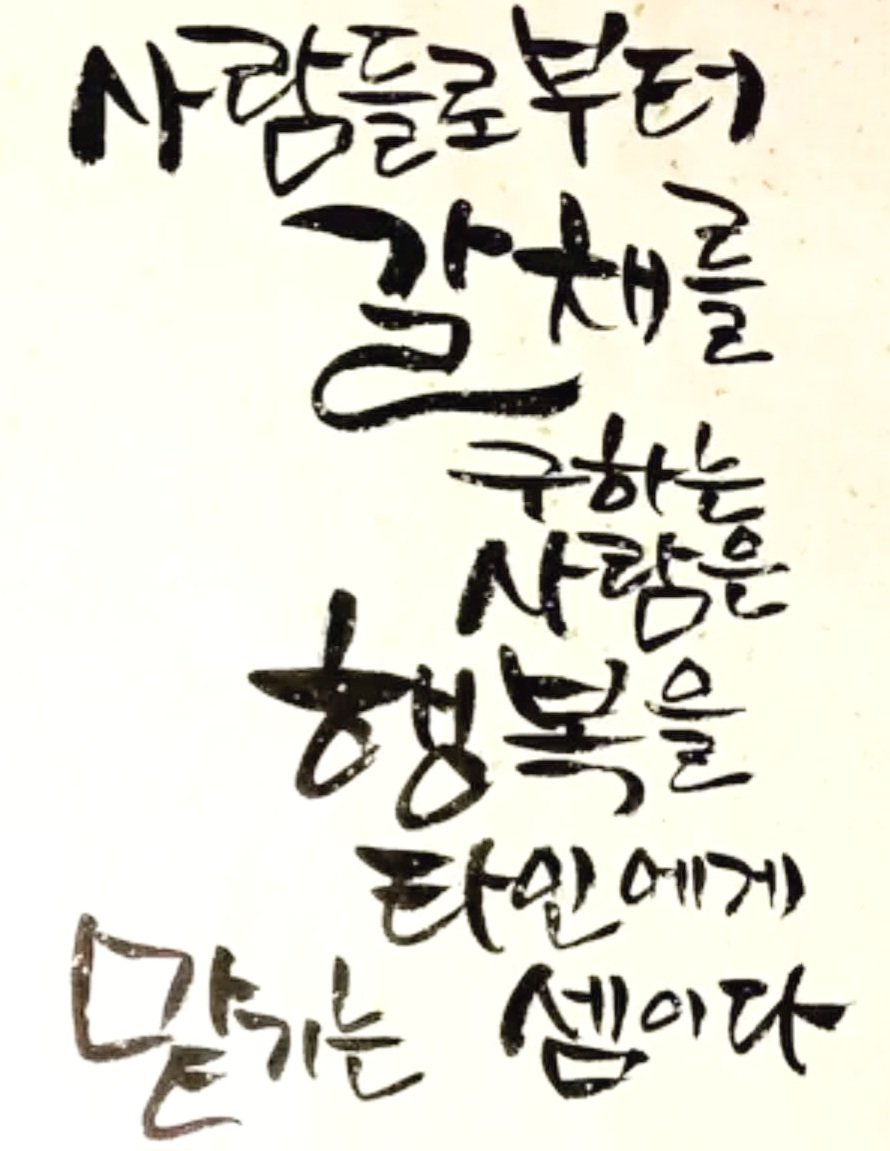 사람들로부터
갈채를
구하는
사람은
행복을
타인에게
맡기는 셈이다